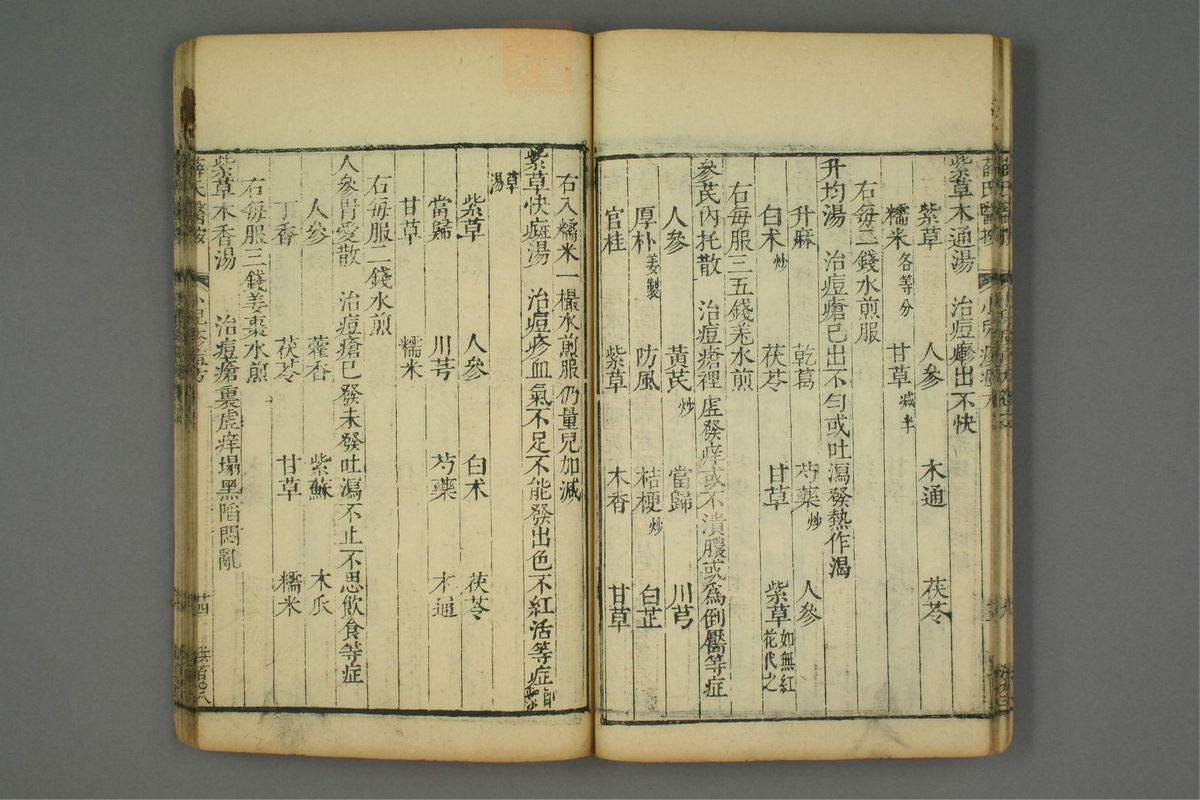 紫草木通湯　治痘疹出不快
紫草　人參　木通　茯苓
糯米各等分　甘草減半
右每二錢水煎服
升均湯　治痘瘡已出不勻或吐瀉發熱作渴
升麻　乾葛　芍藥炒　人參
白术炒　茯苓　甘草　紫草如無紅花代之
右每服三五錢羌水煎
參芪內托散　治痘瘡裡虛發痒或不潰膿或爲倒靨等症
人參　黃芪炒　當歸　川芎
厚朴姜製　防風　桔梗炒　白芷
官桂　紫草　木香　甘草
右入糯米一撮水煎服仍量兒加減
紫草快癍湯　治痘疹血氣不足不能發出色不紅活等症即紫
草湯
紫草　人參　白术　茯苓
當歸　川芎　芍藥　木通
甘草　糯米
右每服二錢水煎
人參胃愛散　治痘瘡已發未發吐瀉不止不思飲食等症
人參　藿香　紫蘇　木瓜
丁香　茯苓　甘草　糯米
右每服三錢姜棗水煎
紫草木香湯　治痘瘡裏虛痒塌黑陷悶亂
薛氏醫按　廿四